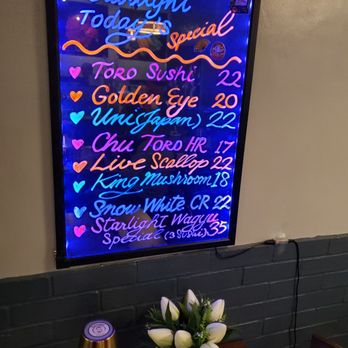 Today's
Special
Toro Sushi 22
Golden Eye 20
Uni (Japan) 22
Chu Toro HR 17
Live Scallop 22
King Mushroom 18
Snow White CR 22
Starlight Wagyu 35
Special (3 Sushi)